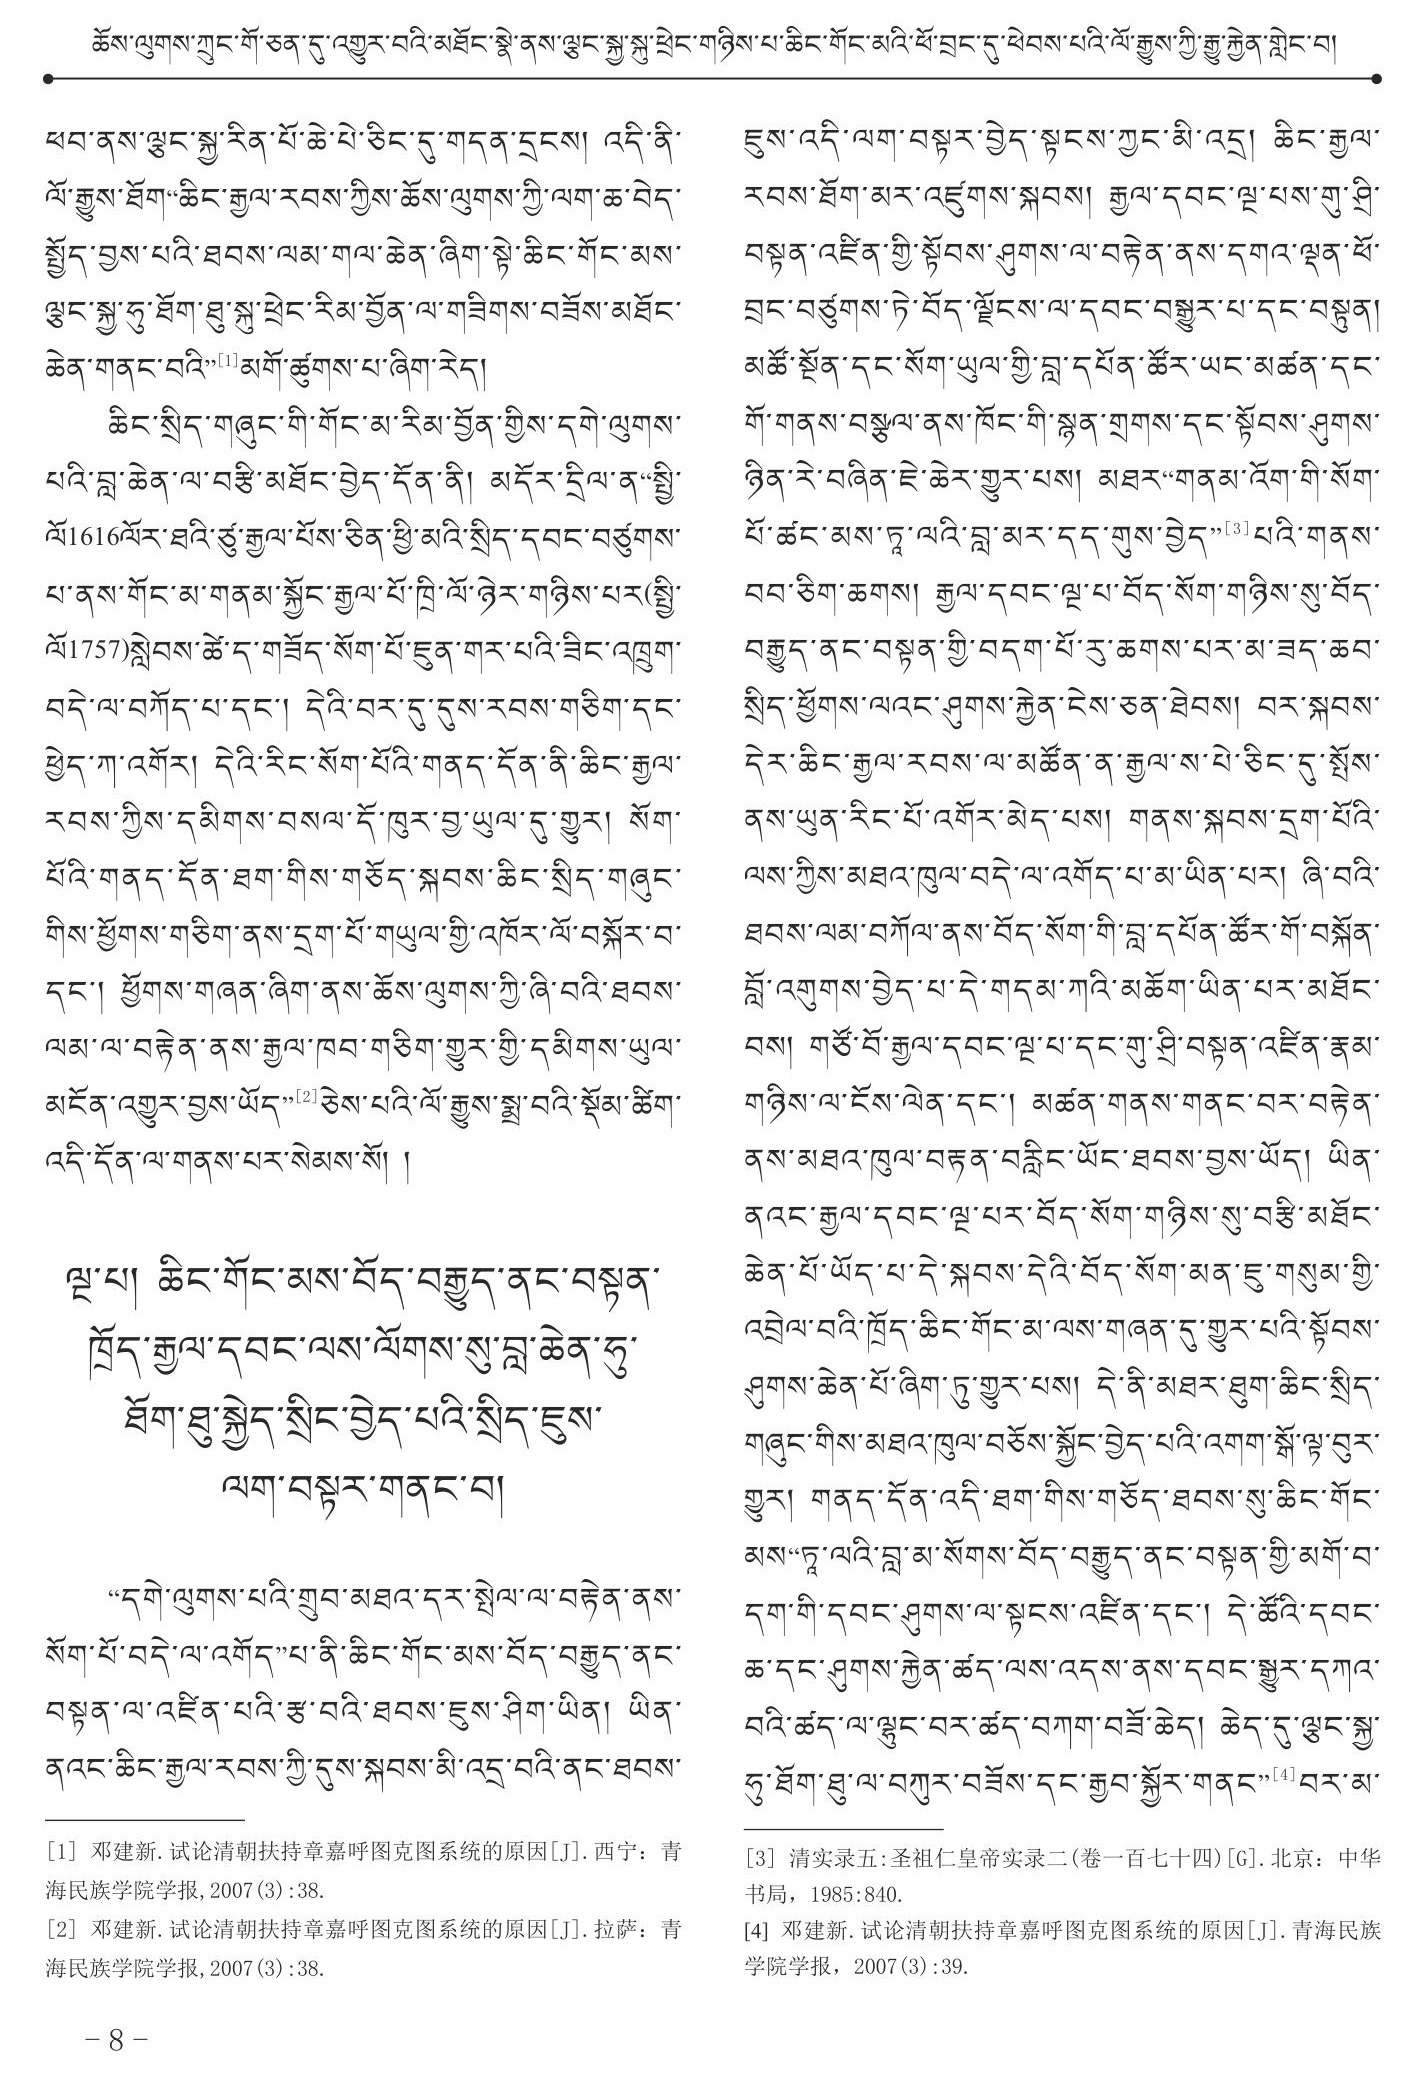 ཆོས་ལུགས་ཀྲུང་གོ་ཅན་དུ་འགྱུར་བའི་མཐོང་སྣེ་ནས་ལྕང་སྐྱ་སྐུ་ཕྲེང་གཉིས་པ་ཆིང་གོང་མའི་ཕོ་བྲང་དུ་ཕེབས་པའི་ལོ་རྒྱུས་ཀྱི་རྒྱུ་རྐྱེན་གླེང་བ།
ཕབ་ནས་ལྕང་སྐྱ་རིན་པོ་ཆེ་པེ་ཅིང་དུ་གདན་དྲངས། འདི་ནི་
ལོ་རྒྱུས་ཐོག“ཆིང་རྒྱལ་རབས་ཀྱིས་ཆོས་ལུགས་ཀྱི་ལག་ཆ་བེད་
སྤྱོད་བྱས་པའི་ཐབས་ལམ་གལ་ཆེན་ཞིག་སྟེ་ཆིང་གོང་མས་
ལྕང་སྐྱ་ཧུ་ཐོག་ཐུ་སྐུ་ཕྲེང་རིམ་བྱོན་ལ་གཟིགས་བཟོས་མཐོང་
ཆེན་གནང་བའི”[1]མགོ་ཚུགས་པ་ཞིག་རེད།
ཆིང་སྲིད་གཞུང་གི་གོང་མ་རིམ་བྱོན་གྱིས་དགེ་ལུགས་
པའི་བླ་ཆེན་ལ་བརྩི་མཐོང་བྱེད་དོན་ནི། མདོར་དྲིལ་ན“སྤྱི་
ལོ1616ལོར་ཐའི་ཙུ་རྒྱལ་པོས་ཅིན་ཕྱི་མའི་སྲིད་དབང་བཙུགས་
པ་ནས་གོང་མ་གནམ་སྐྱོང་རྒྱལ་པོ་ཁྲི་ལོ་ཉེར་གཉིས་པར(སྤྱི་
ལོ1757)སླེབས་ཚེ་ད་གཟོད་སོག་པོ་ཇུན་གར་པའི་ཟིང་འཁྲུག་
བདེ་ལ་བཀོད་པ་དང་། དེའི་བར་དུ་དུས་རབས་གཅིག་དང་
ཕྱེད་ཀ་འགོར། དེའི་རིང་སོག་པོའི་གནད་དོན་ནི་ཆིང་རྒྱལ་
རབས་ཀྱིས་དམིགས་བསལ་དོ་ཁུར་བྱ་ཡུལ་དུ་གྱུར། སོག་
པོའི་གནད་དོན་ཐག་གིས་གཅོད་སྐབས་ཆིང་སྲིད་གཞུང་
གིས་ཕྱོགས་གཅིག་ནས་དྲག་པོ་གཡུལ་གྱི་འཁོར་ལོ་བསྐོར་བ་
དང་། ཕྱོགས་གཞན་ཞིག་ནས་ཆོས་ལུགས་ཀྱི་ཞི་བའི་ཐབས་
ལམ་ལ་བརྟེན་ནས་རྒྱལ་ཁབ་གཅིག་གྱུར་གྱི་དམིགས་ཡུལ་
མངོན་འགྱུར་བྱས་ཡོད”[2]ཅེས་པའི་ལོ་རྒྱུས་སྨྲ་བའི་སྡོམ་ཚིག་
འདི་དོན་ལ་གནས་པར་སེམས་སོ། །
ལྔ་པ། ཆིང་གོང་མས་བོད་བརྒྱུད་ནང་བསྟན་
ཁྲོད་རྒྱལ་དབང་ལས་ལོགས་སུ་བླ་ཆེན་ཧུ་
ཐོག་ཐུ་སྐྱེད་སྲིང་བྱེད་པའི་སྲིད་ཇུས་
ལག་བསྟར་གནང་བ།
“དགེ་ལུགས་པའི་གྲུབ་མཐའ་དར་སྤེལ་ལ་བརྟེན་ནས་
སོག་པོ་བདེ་ལ་འགོད”པ་ནི་ཆིང་གོང་མས་བོད་བརྒྱུད་ནང་
བསྟན་ལ་འཛིན་པའི་རྩ་བའི་ཐབས་ཇུས་ཤིག་ཡིན། ཡིན་
ནའང་ཆིང་རྒྱལ་རབས་ཀྱི་དུས་སྐབས་མི་འདྲ་བའི་ནང་ཐབས་
[1] 邓建新.试论清朝扶持章嘉呼图克图系统的原因[J].西宁：青
海民族学院学报,2007(3):38.
[2] 邓建新.试论清朝扶持章嘉呼图克图系统的原因[J].拉萨：青
海民族学院学报,2007(3):38.
ཇུས་འདི་ལག་བསྟར་བྱེད་སྟངས་ཀྱང་མི་འདྲ། ཆིང་རྒྱལ་
རབས་ཐོག་མར་འཛུགས་སྐབས། རྒྱལ་དབང་ལྔ་པས་གུ་ཤྲི་
བསྟན་འཛིན་གྱི་སྟོབས་ཤུགས་ལ་བརྟེན་ནས་དགའ་ལྡན་ཕོ་
བྲང་བཙུགས་ཏེ་བོད་ལྗོངས་ལ་དབང་བསྒྱུར་པ་དང་བསྟུན།
མཚོ་སྔོན་དང་སོག་ཡུལ་གྱི་བླ་དཔོན་ཚོར་ཡང་མཚན་དང་
གོ་གནས་བསྩལ་ནས་ཁོང་གི་སྙན་གྲགས་དང་སྟོབས་ཤུགས་
ཉིན་རེ་བཞིན་ཇེ་ཆེར་གྱུར་པས། མཐར“གནམ་འོག་གི་སོག་
པོ་ཚང་མས་ཏཱ་ལའི་བླ་མར་དད་གུས་བྱེད”[3]པའི་གནས་
བབ་ཅིག་ཆགས། རྒྱལ་དབང་ལྔ་པ་བོད་སོག་གཉིས་སུ་བོད་
བརྒྱུད་ནང་བསྟན་གྱི་བདག་པོ་རུ་ཆགས་པར་མ་ཟད་ཆབ་
སྲིད་ཕྱོགས་ལའང་ཤུགས་རྐྱེན་ངེས་ཅན་ཐེབས། བར་སྐབས་
དེར་ཆིང་རྒྱལ་རབས་ལ་མཚོན་ན་རྒྱལ་ས་པེ་ཅིང་དུ་སྤོས་
ནས་ཡུན་རིང་པོ་འགོར་མེད་པས། གནས་སྐབས་དྲག་པོའི་
ལས་ཀྱིས་མཐའ་ཁུལ་བདེ་ལ་འགོད་པ་མ་ཡིན་པར། ཞི་བའི་
ཐབས་ལམ་བཀོལ་ནས་བོད་སོག་གི་བླ་དཔོན་ཚོར་གོ་བསྐོན་
བློ་འགུགས་བྱེད་པ་དེ་གདམ་ཀའི་མཆོག་ཡིན་པར་མཐོང་
བས། གཙོ་བོ་རྒྱལ་དབང་ལྔ་པ་དང་གུ་ཤྲི་བསྟན་འཛིན་རྣམ་
གཉིས་ལ་ངོས་ལེན་དང་། མཚན་གནས་གནང་བར་བརྟེན་
ནས་མཐའ་ཁུལ་བརྟན་བརླིང་ཡོང་ཐབས་བྱས་ཡོད། ཡིན་
ནའང་རྒྱལ་དབང་ལྔ་པར་བོད་སོག་གཉིས་སུ་བརྩི་མཐོང་
ཆེན་པོ་ཡོད་པ་དེ་སྐབས་དེའི་བོད་སོག་མན་ཇུ་གསུམ་གྱི་
འབྲེལ་བའི་ཁྲོད་ཆིང་གོང་མ་ལས་གཞན་དུ་གྱུར་པའི་སྟོབས་
ཤུགས་ཆེན་པོ་ཞིག་ཏུ་གྱུར་པས། དེ་ནི་མཐར་ཐུག་ཆིང་སྲིད་
གཞུང་གིས་མཐའ་ཁུལ་བཅོས་སྐྱོང་བྱེད་པའི་འགག་སྒོ་ལྟ་བུར་
གྱུར། གནད་དོན་འདི་ཐག་གིས་གཅོད་ཐབས་སུ་ཆིང་གོང་
མས“ཏཱ་ལའི་བླ་མ་སོགས་བོད་བརྒྱུད་ནང་བསྟན་གྱི་མགོ་བ་
དག་གི་དབང་ཤུགས་ལ་སྟངས་འཛིན་དང་། དེ་ཚོའི་དབང་
ཆ་དང་ཤུགས་རྐྱེན་ཚད་ལས་འདས་ནས་དབང་སྒྱུར་དཀའ་
བའི་ཚད་ལ་ལྷུང་བར་ཚད་བཀག་བཟོ་ཆེད། ཆེད་དུ་ལྕང་སྐྱ་
ཧུ་ཐོག་ཐུ་ལ་བཀུར་བཟོས་དང་རྒྱབ་སྐྱོར་གནང”[4]བར་མ་
[3] 清实录五:圣祖仁皇帝实录二(卷一百七十四)[G].北京：中华
书局，1985:840.
[4] 邓建新.试论清朝扶持章嘉呼图克图系统的原因[J].青海民族
学院学报，2007(3):39.
– 8 –